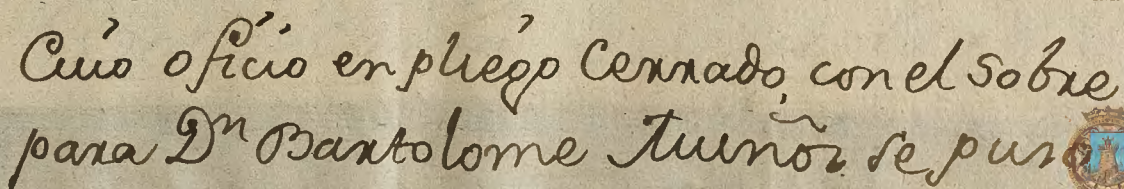 Cuio oficio en pliego Cerrado, con el sobre
para Dn Bartolome Muñoz se puso